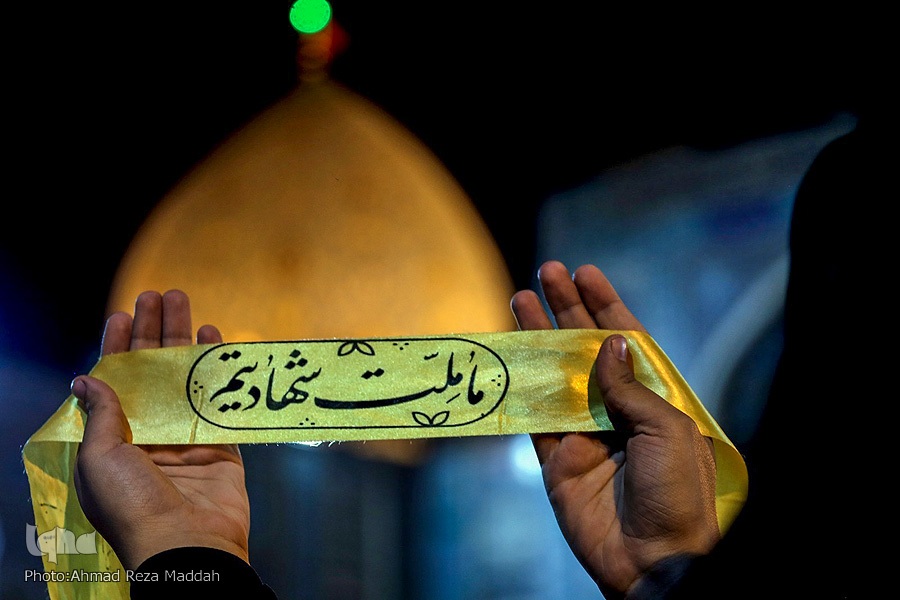 ما ملّت شهادتیم
iqna
Photo:Ahmad Reza Maddah